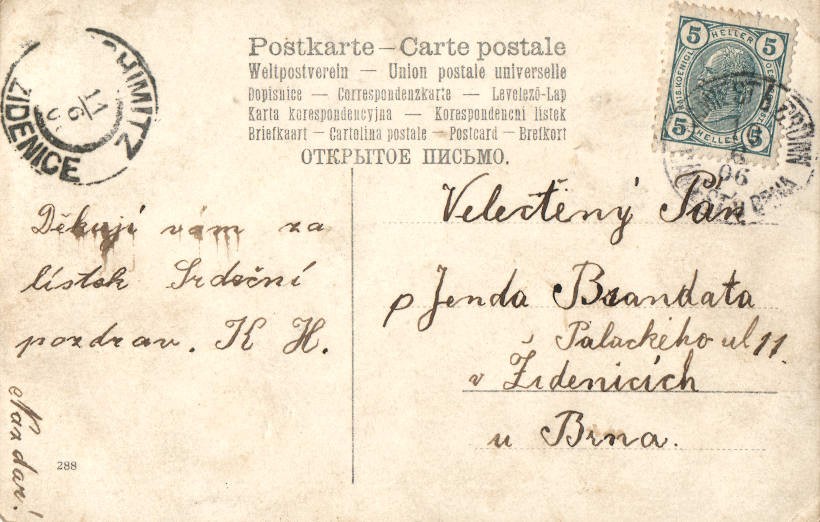 Postkarte – Carte postale
Weltpostverein — Union postale universelle
Dopisnice — Correspondenzkarte — Levelező-Lap
Karta korespondencyjna — Korespondencni lístek
Briefkaart – Cartolina postale – Postcard – Brefkort
ОТКРЫТОЕ ПИСЬМО.
5 HELLER 5
5 HELLER 5
11
6
ZIDENICE
06
Velectěný Pán
p Jenda Brandata
Palackého ul 11.
v Židenicích
u Brna.
Děkuji vám za
lístek Srdeční
pozdrav. K H.
Nazdar!
288